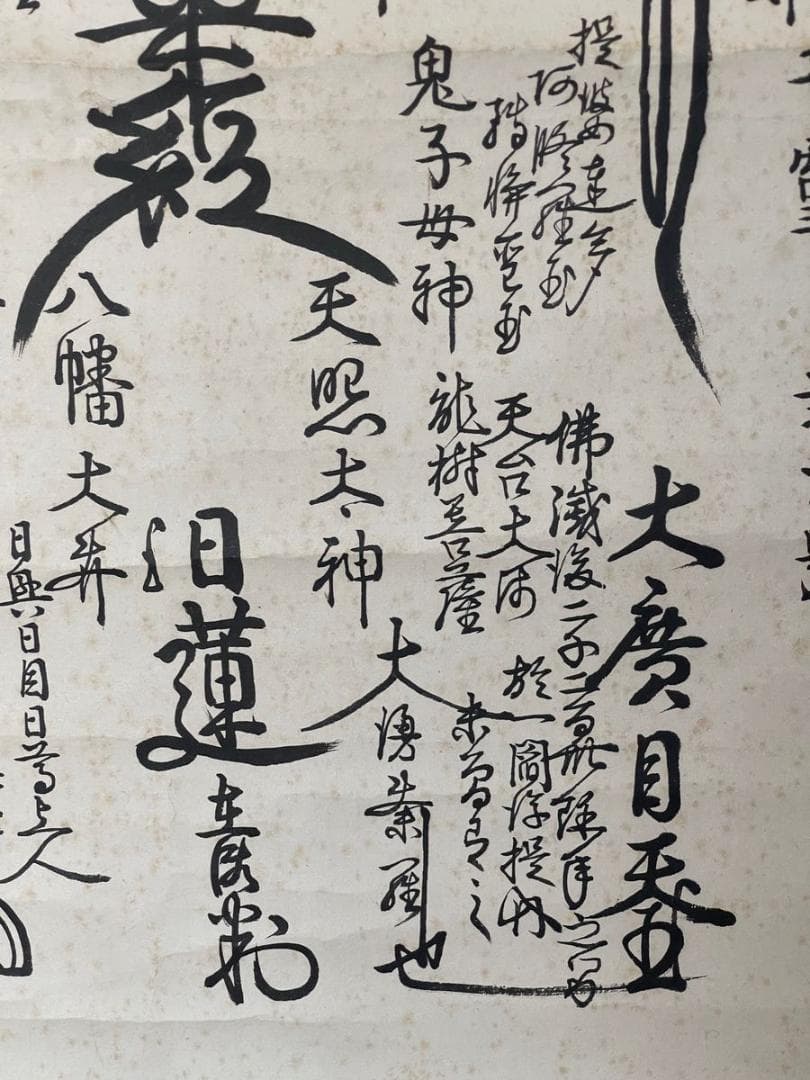 提婆達多
阿修羅王
轉輪聖王
鬼子母神
大廣目天王
佛滅後二千二百卅餘年之間
於一閻浮提内
未曽有之
大漫荼羅也
天台大師
龍樹菩薩
天照太神
八幡大菩薩
日蓮
在御判
日興日目日尊上人